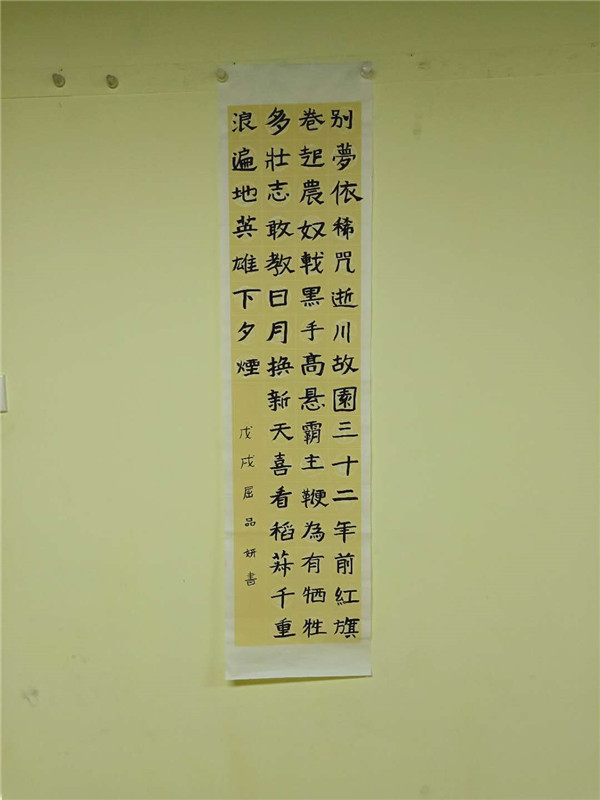 别夢依稀咒逝川故園三十二年前紅旗
卷起農奴戟黑手高悬霸主鞭為有牺牲
多壯志敢教日月换新天喜看稻菽千重
浪遍地英雄下夕煙
戊戌屈品妍書